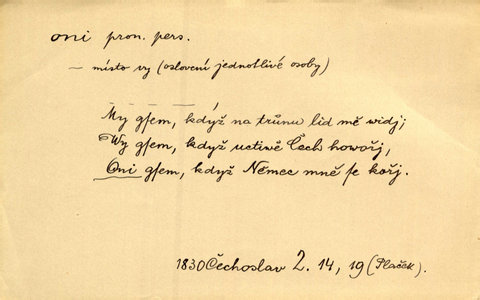 oni pron. pers.
— místo vy (oslovení jednotlivé osoby)
My gſem, když na trůnu lid mě widj;
Wy gſem, když uctiwě Čech howořj,
Oni gſem, když Němec mně ſe kořj.
1830 Čechoslav 2. 14, 19 (Plaček).